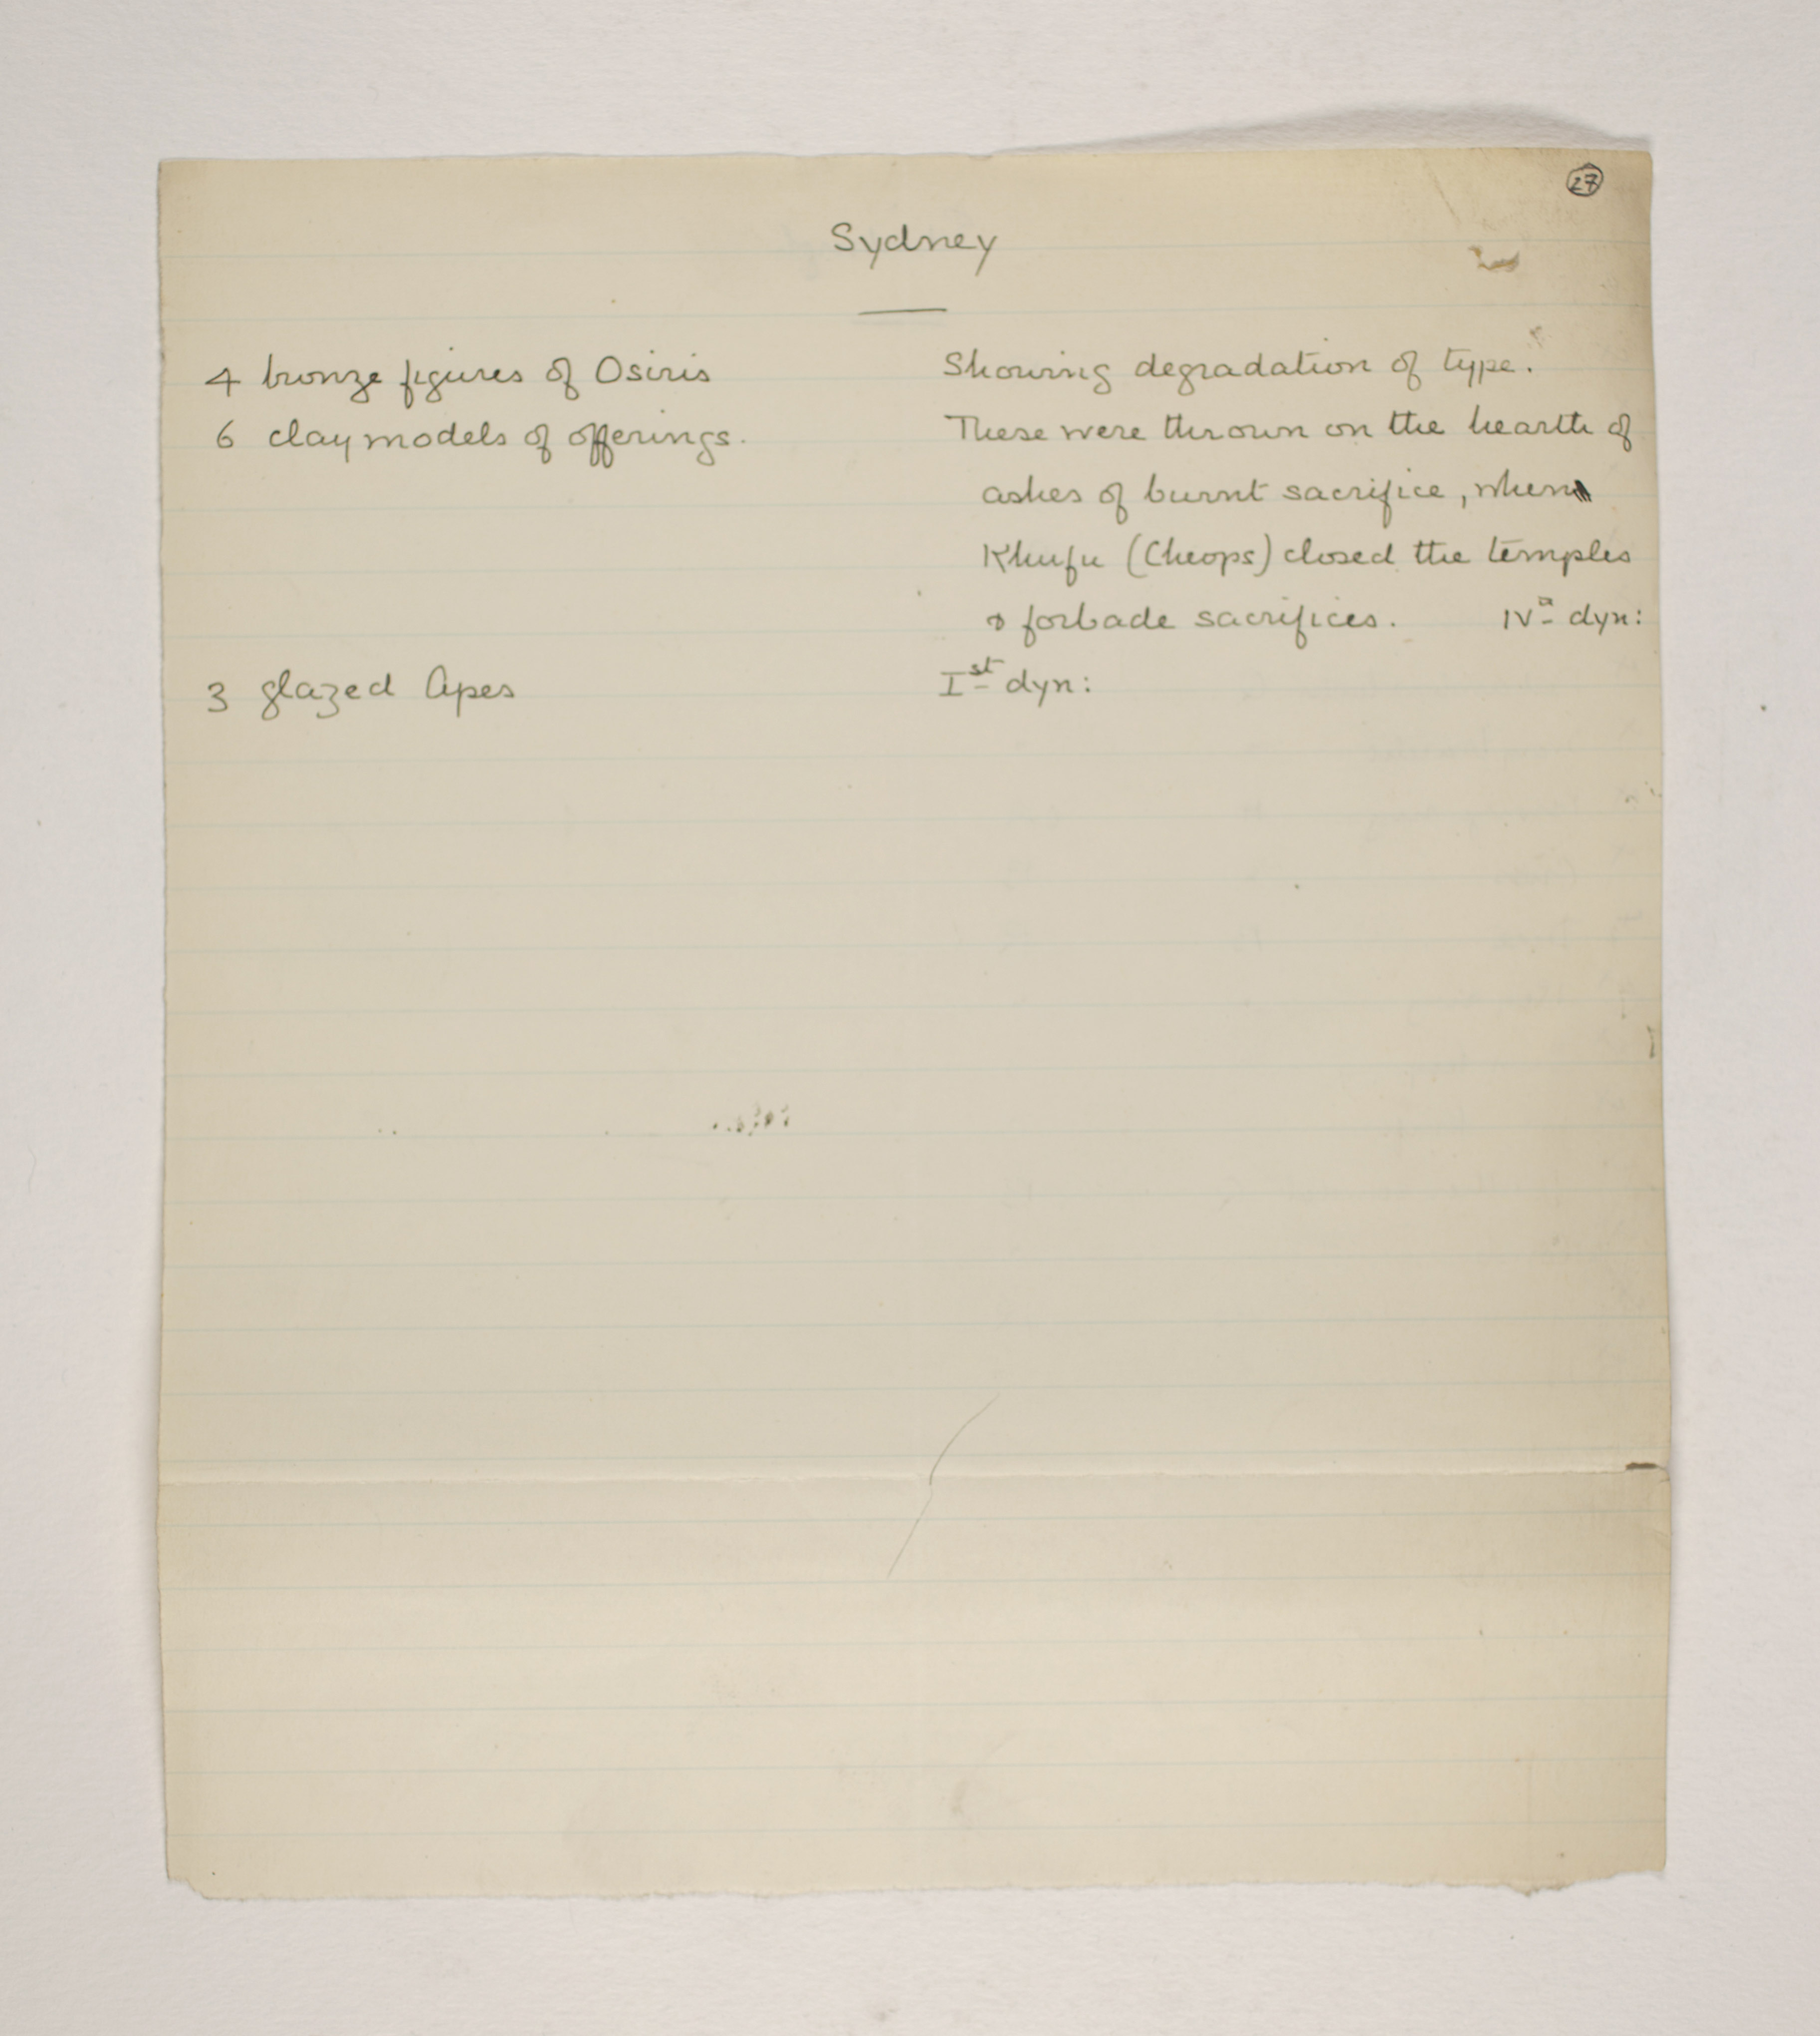 27
Sydney
4 bronze figures of Osiris Showing degradation of type.
6 clay models of offerings. These were thrown on the hearth of
ashes of burnt sacrifice, when
Khufu (Cheops) closed the temples
& forbade sacrifices. IVth dyn:
3 glazed Apes Ist dyn: